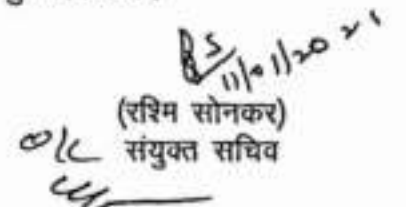 RS
11/01/2021
(रश्मि सोनकर)
संयुक्त सचिव
O/C